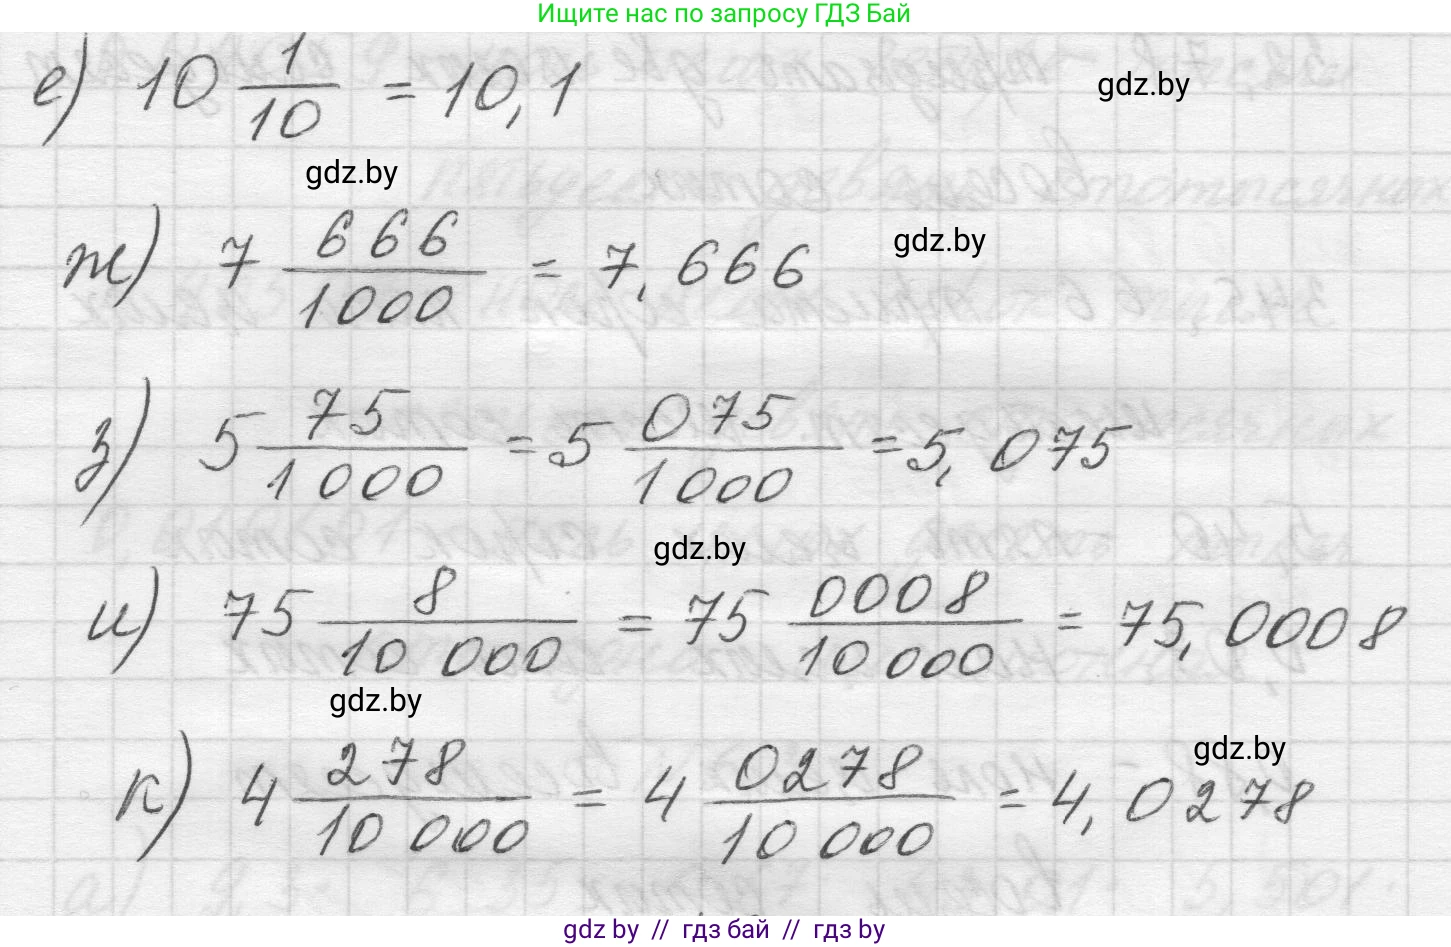 Ищите нас по запросу ГДЗ Бай
е) 10 1/10 = 10,1
gdz.by
gdz.by
ж) 7 666/1000 = 7,666
gdz.by
з) 5 75/1000 = 5 075/1000 = 5,075
gdz.by
и) 75 8/10 000 = 75 0008/10 000 = 75,0008
gdz.by
gdz.by
к) 4 278/10 000 = 4 0278/10 000 = 4,0278
gdz.by // гдз бай // гдз by